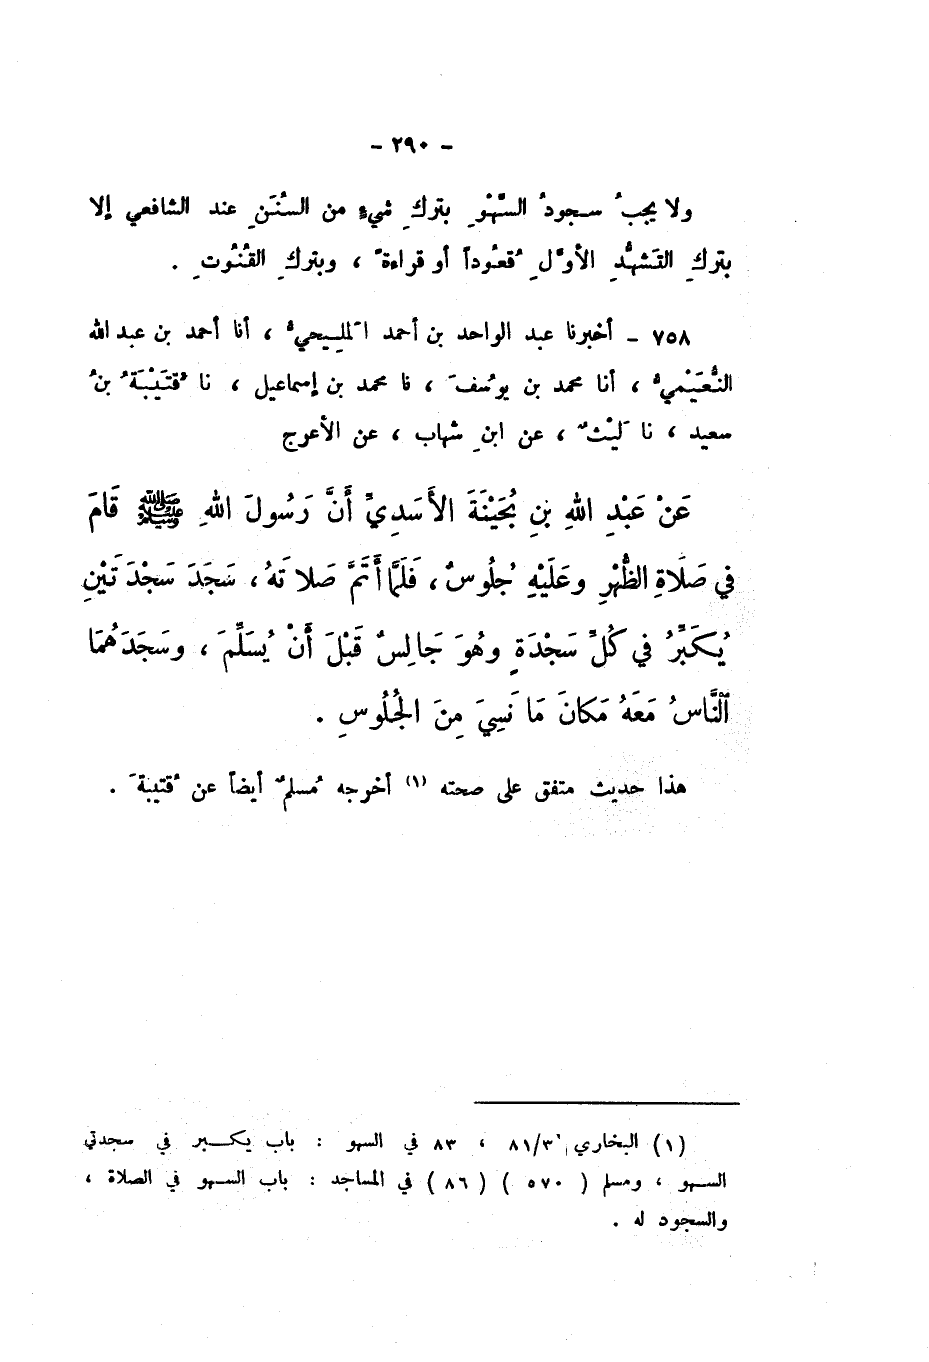 - ٢٩٠ -
ولا يجبُ سجودُ السَّهْوِ بتركِ شيءٍ من السُنَنِ عند الشافعي إلا
بتركِ التَشهُّدِ الأوَّلِ قُعُوداً أو قراءةً ، وبتركِ القُنُوتِ .
٧٥٨ - أخبرنا عبد الواحد بن أحمد المَلِيحيُّ ، أنا أحمد بن عبد الله
النُّعَيْميُّ ، أنا محمد بن يوسُفَ ، نا محمد بن إسماعيل ، نا قُتَيْبَةُ بنُ
سعيد ، نا لَيْثٌ ، عن ابنِ شهاب ، عن الأعرج
عَنْ عَبْدِ اللهِ بنِ بُحَيْنَةَ الأَسَدِيِّ أَنَّ رَسُولَ اللهِ ﷺ قَامَ
في صَلَاةِ الظُّهْرِ وعَلَيْهِ جُلُوسٌ ، فَلَمَّا أَتَمَّ صَلاتَهُ ، سَجَدَ سَجْدَتَيْنِ
يُكَبِّرُ في كُلِّ سَجْدَةٍ وهُوَ جَالِسٌ قَبْلَ أَنْ يُسَلِّمَ ، وسَجَدَهُمَا
ٱلنَّاسُ مَعَهُ مَكانَ مَا نَسِيَ مِنَ الجُلُوسِ .
هذا حديث متفق على صحته (١) أخرجه مُسلمٌ أيضاً عن قُتيبةَ .
(١) البخاري ٨١/٣ ، ٨٣ في السهو : باب يكبر في سجدتي
السهو ، ومسلم ( ٥٧٠ ) ( ٨٦ ) في المساجد : باب السهو في الصلاة ،
والسجود له .